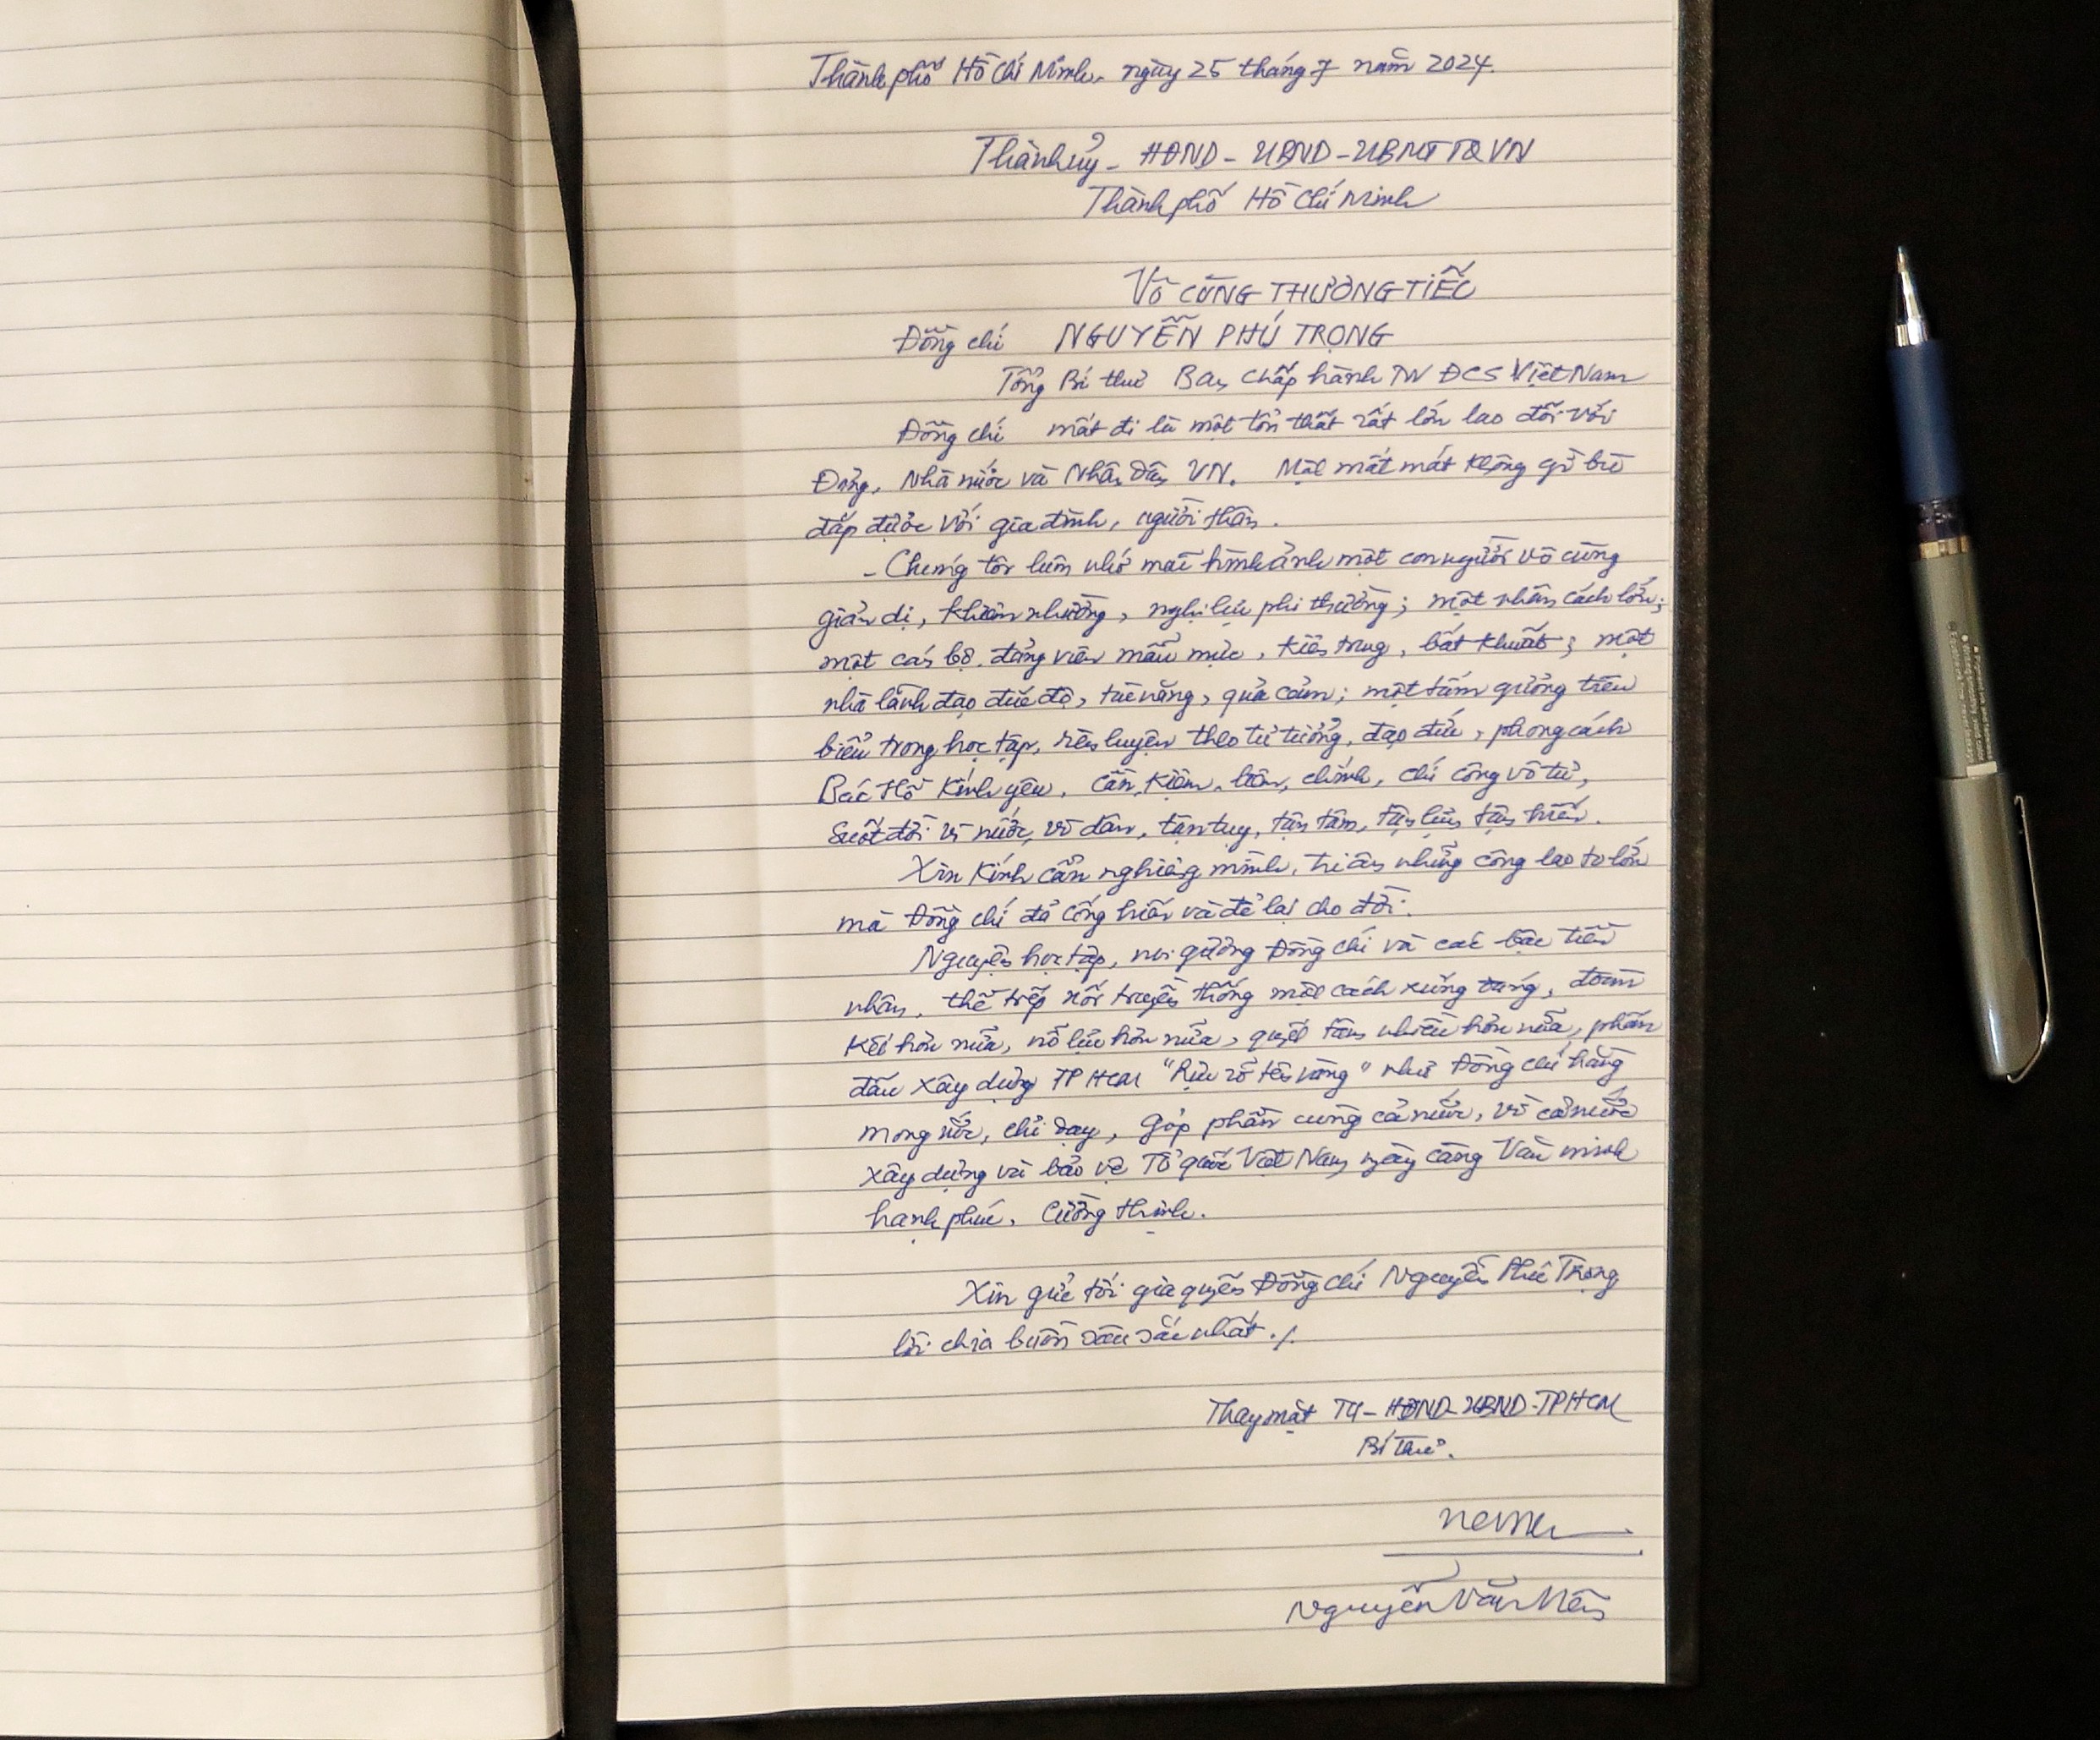 Thành phố Hồ Chí Minh, ngày 25 tháng 7 năm 2024.
Thành ủy - HĐND - UBND - UBMTTQVN
Thành phố Hồ Chí Minh
VÔ CÙNG THƯƠNG TIẾC
Đồng chí NGUYỄN PHÚ TRỌNG
Tổng Bí thư Ban Chấp hành TW ĐCS Việt Nam
Đồng chí mất đi là một tổn thất rất lớn lao đối với
Đảng, Nhà nước và Nhân Dân VN. Một mất mát không gì bù
đắp được với gia đình, người thân.
- Chúng tôi luôn nhớ mãi hình ảnh một con người vô cùng
giản dị, khiêm nhường, nghị lực phi thường; một nhân cách lớn;
một cán bộ, đảng viên mẫu mực, kiên trung, bất khuất; một
nhà lãnh đạo đức độ, tài năng, quả cảm; một tấm gương tiêu
biểu trong học tập, rèn luyện theo tư tưởng, đạo đức, phong cách
Bác Hồ kính yêu, cần, kiệm, liêm, chính, chí công vô tư,
Suốt đời vì nước, vì dân, tận tụy, tận tâm, tận lực, tận hiến.
Xin kính cẩn nghiêng mình, tri ân những công lao to lớn
mà Đồng chí đã cống hiến và để lại cho đời.
Nguyện học tập, noi gương Đồng chí và các bậc tiền
nhân, thế tiếp nối truyền thống một cách xứng đáng, đoàn
kết hơn nữa, nỗ lực hơn nữa, quyết tâm nhiều hơn nữa, phấn
đấu xây dựng TPHCM "Rực rỡ tên vàng" như Đồng chí hằng
mong ước, chỉ dạy, góp phần cùng cả nước, vì cả nước
xây dựng và bảo vệ Tổ quốc Việt Nam ngày càng Văn minh
hạnh phúc, Cường thịnh.
Xin gửi tới gia quyến Đồng chí Nguyễn Phú Trọng
lời chia buồn sâu sắc nhất ./.
Thay mặt TU - HĐND - UBND - TPHCM
Bí thư.
Nguyễn Văn Nên